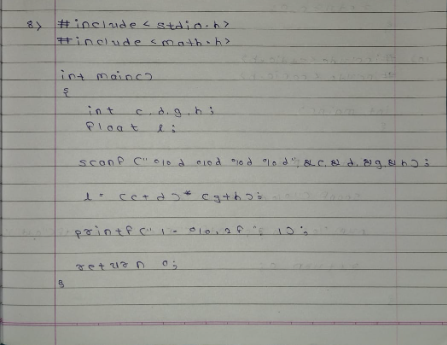 8) #include <stdio.h>
#include <math.h>
int main()
{
int c,d,g,h;
float l;
scanf ("%d %d %d %d", &c,&d,&g,&h);
l = (c+d)* (g+h);
printf ("l = %.2f", l);
return 0;
}